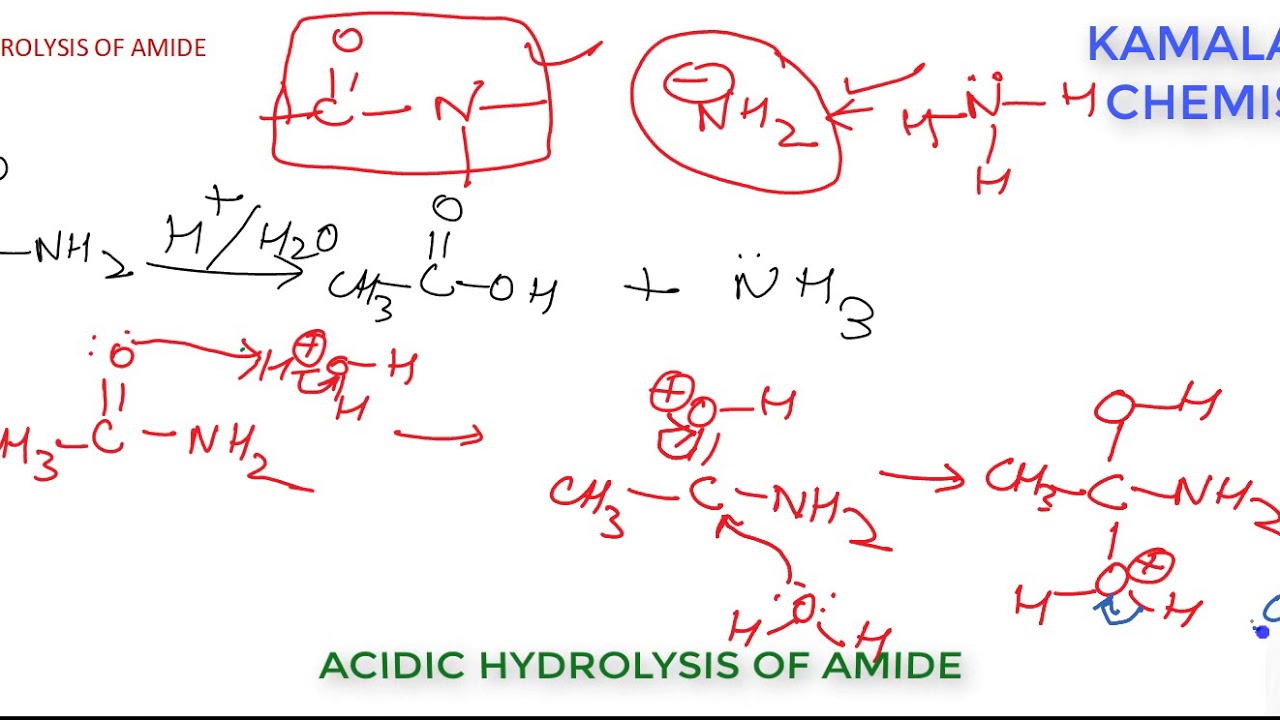 ROLYSIS OF AMIDE
KAMALA
CHEMIS
O
C - N -
⊖NH2
H - N̈ - H
H
O
-NH2 H+/H2O → CH3-C-OH + N̈H3
O
H ⊕ O - H
H
H3-C-NH2 →
⊕ O-H
CH3-C-NH2 →
H O H
O-H
CH3-C-NH2
H-O⊕-H
ACIDIC HYDROLYSIS OF AMIDE